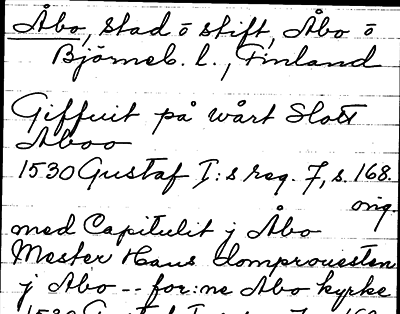 Åbo, stad o stift, Åbo o
Björneb. l., Finland
Giffuit på wårt Slott
Aboo
1530 Gustaf I:s reg. 7, s. 168.
orig.
med Capitulit j Åbo
Mester Hans domprouesten
j Abo -- for:ne Abo kyrke
1530 Gustaf I:s reg. 7, s. 168